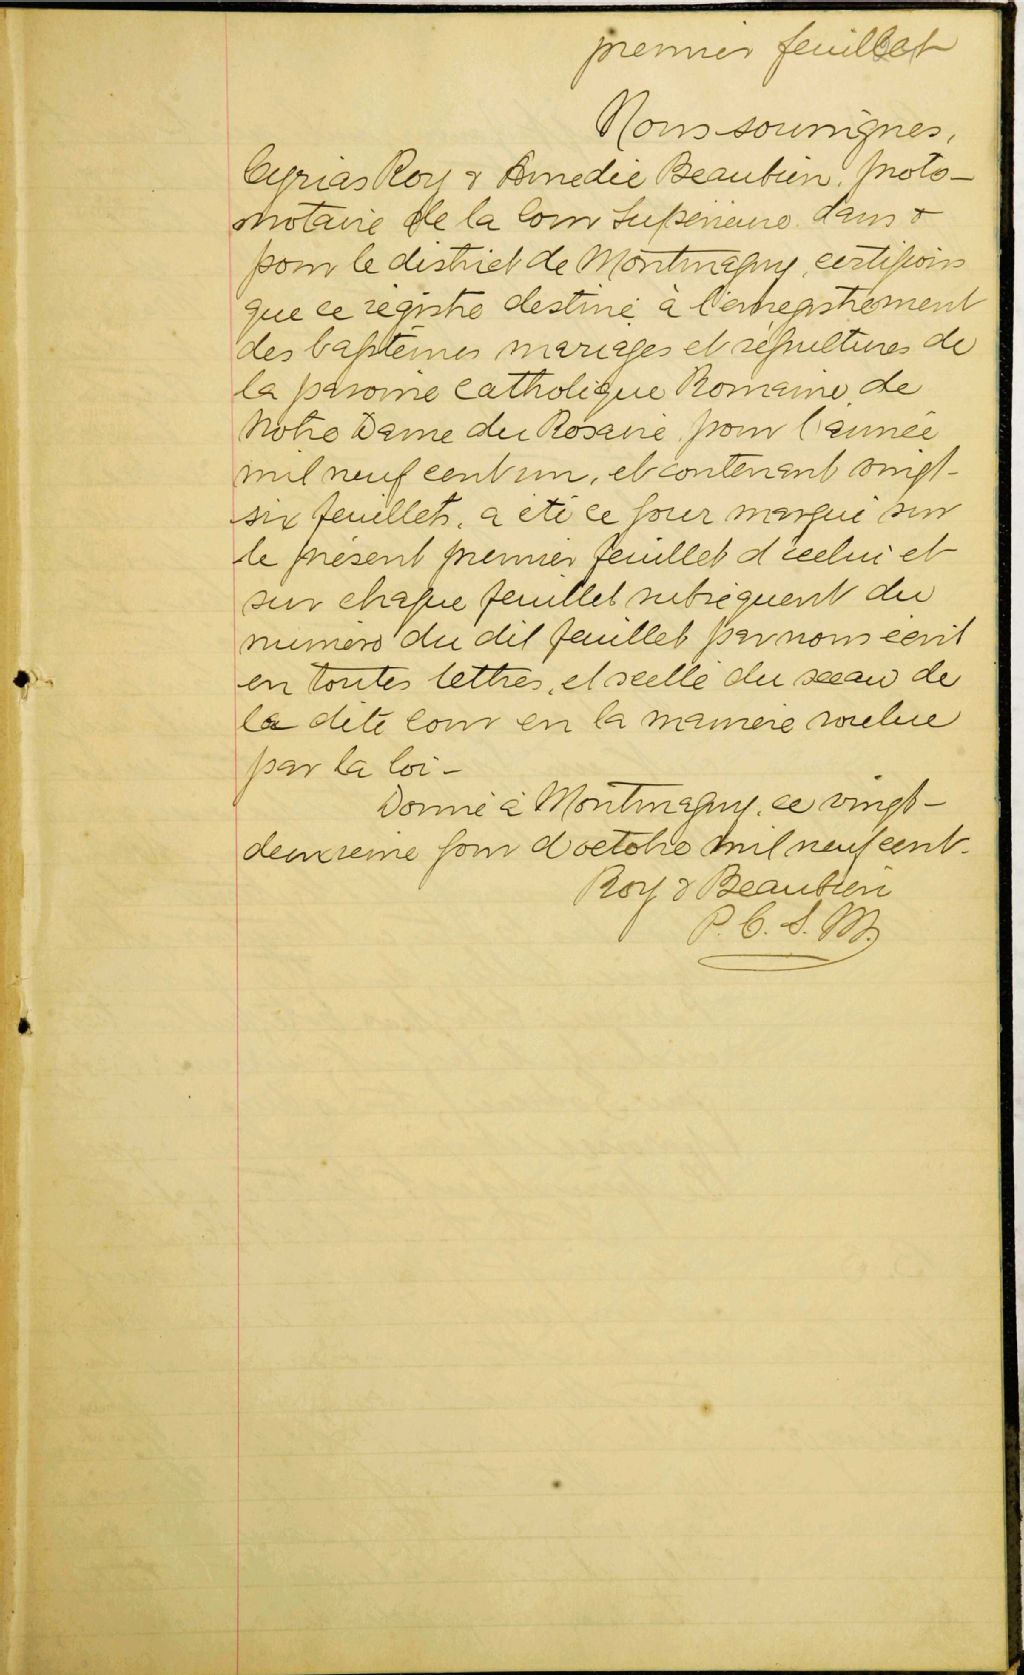 premier feuillet
Nous soussignés,
Cyrias Roy & Amedée Beaubien, proto-
notaire de la Cour Supérieure dans &
pour le district de Montmagny, certifions
que ce régistre destiné à l'enregistrement
des baptêmes mariages et sépultures de
la paroisse catholique Romaine de
Notre Dame du Rosaire pour l'année
mil neuf cent un, et contenant vingt-
six feuillets, a été ce jour marqué sur
le présent premier feuillet d'icelui et
sur chaque feuillet subséquent du
numéro du dit feuillet par nous écrit
en toutes lettres, et scellé du sceau de
la dite Cour en la manière voulue
par la loi -
Donné à Montmagny, ce vingt-
deuxième jour d'octobre mil neuf cent.
Roy & Beaubien
P. C. S. M.